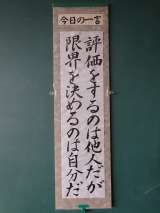 今日の一言
評価をするのは他人だが
限界を決めるのは自分だ